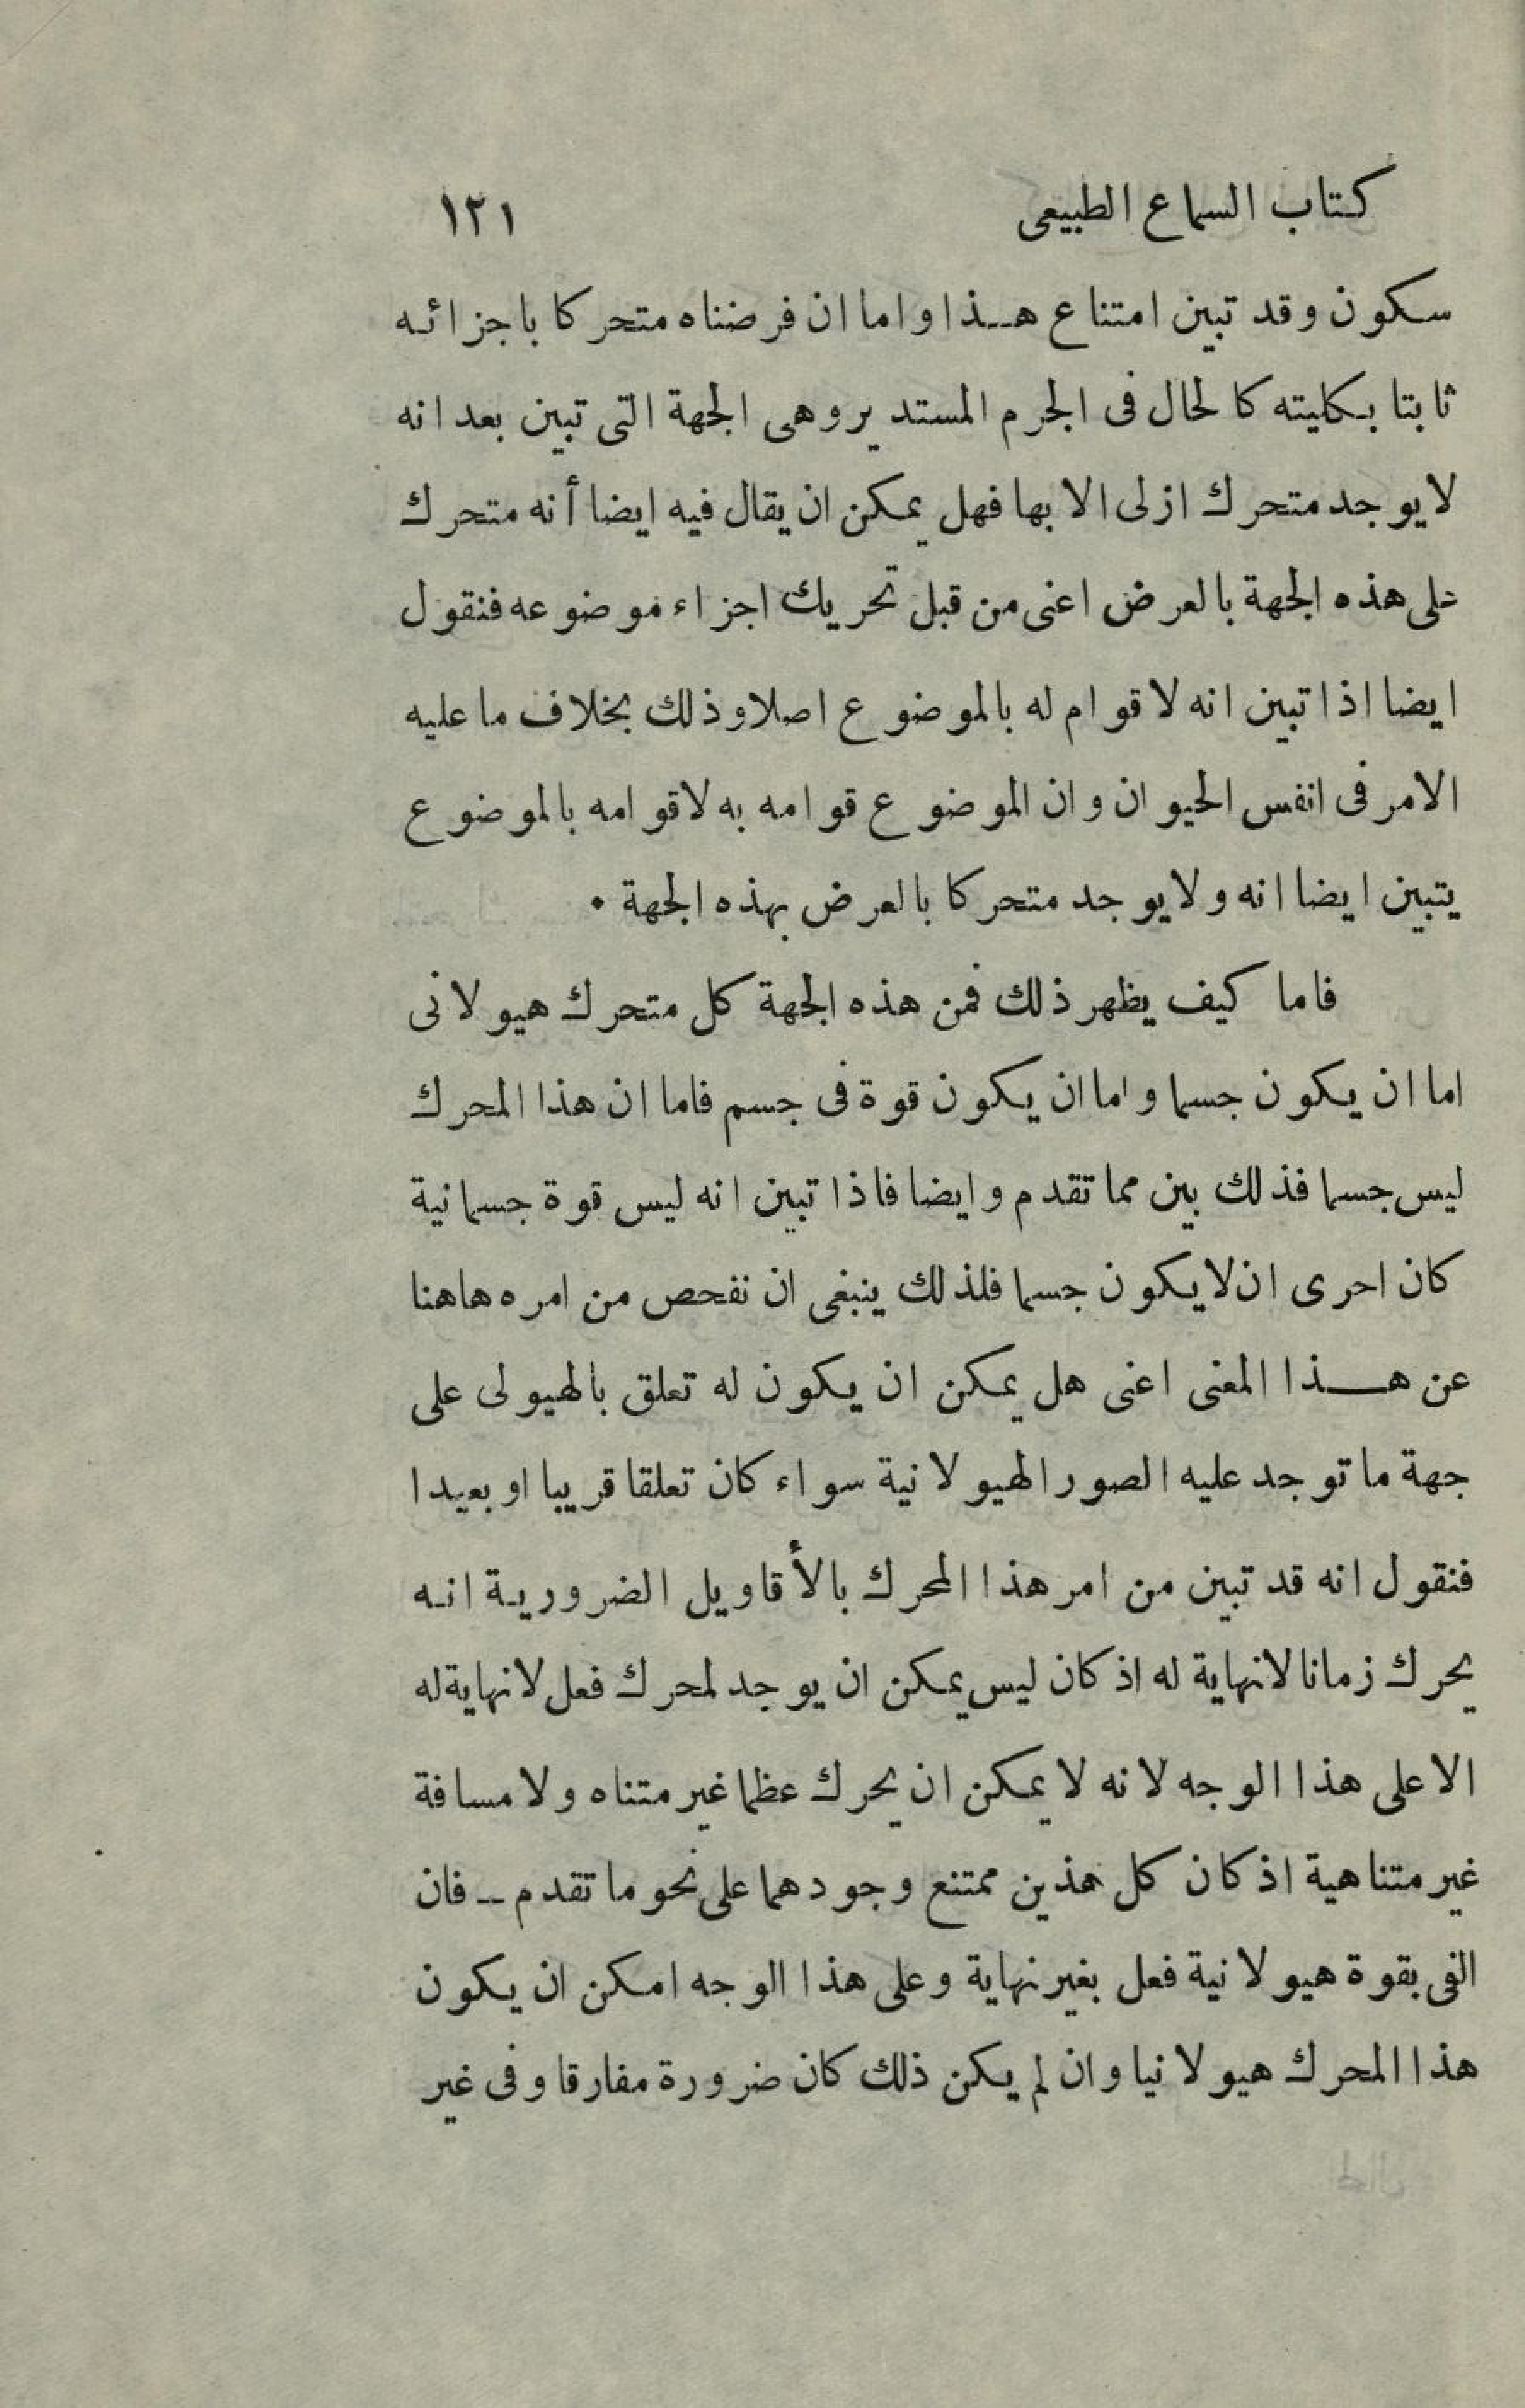 كتاب السماع الطبيعى ١٢١
سكون وقد تبين امتناع هـذا واما ان فرضناه متحركا باجزائه
ثابتا بكليته كالحال فى الجرم المستدير وهى الجهة التى تبين بعد انه
لايوجد متحرك ازلى الا بها فهل يمكن ان يقال فيه ايضا أنه متحرك
على هذه الجهة بالعرض اعنى من قبل تحريك اجزاء موضوعه فنقول
ايضا اذا تبين انه لا قوام له بالموضوع اصلا وذلك بخلاف ما عليه
الامر فى انفس الحيوان وان الموضوع قوامه به لا قوامه بالموضوع
يتبين ايضا انه ولا يوجد متحركا بالعرض بهذه الجهة ٠
فاما كيف يظهر ذلك فمن هذه الجهة كل متحرك هيولانى
اما ان يكون جسما واما ان يكون قوة فى جسم فاما ان هذا المحرك
ليس جسما فذلك بين مما تقدم وايضا فاذا تبين انه ليس قوة جسمانية
كان احرى ان لا يكون جسما فلذلك ينبغى ان نفحص من امره هاهنا
عن هـــذا المعنى اعنى هل يمكن ان يكون له تعلق بالهيولى على
جهة ما توجد عليه الصور الهيولانية سواء كان تعلقا قريبا او بعيدا
فنقول انه قد تبين من امر هذا المحرك بالأقاويل الضرورية انه
يحرك زمانا لانهاية له اذ كان ليس يمكن ان يوجد لمحرك فعل لانهاية له
الا على هذا الوجه لانه لا يمكن ان يحرك عظما غير متناه ولا مسافة
غير متناهية اذ كان كل هذين ممتنع وجودهما على نحو ما تقدم ــ فان
الفى بقوة هيولانية فعل بغير نهاية وعلى هذا الوجه امكن ان يكون
هذا المحرك هيولانيا وان لم يكن ذلك كان ضرورة مفارقا وفى غير